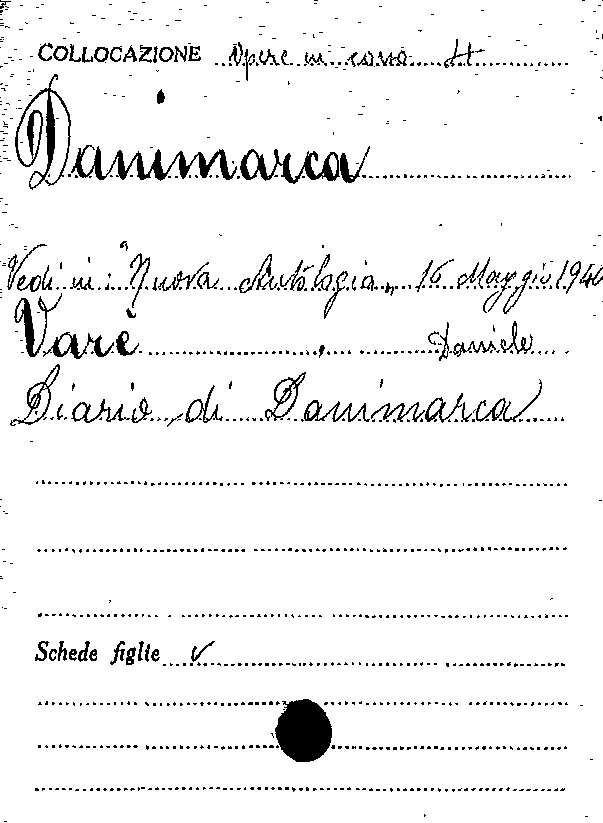 COLLOCAZIONE Opere in corso
Danimarca
Vedi in: "Nuova Antologia„ 16 Maggio 194
Varè, Daniele
Diario di Danimarca
Schede figlie V